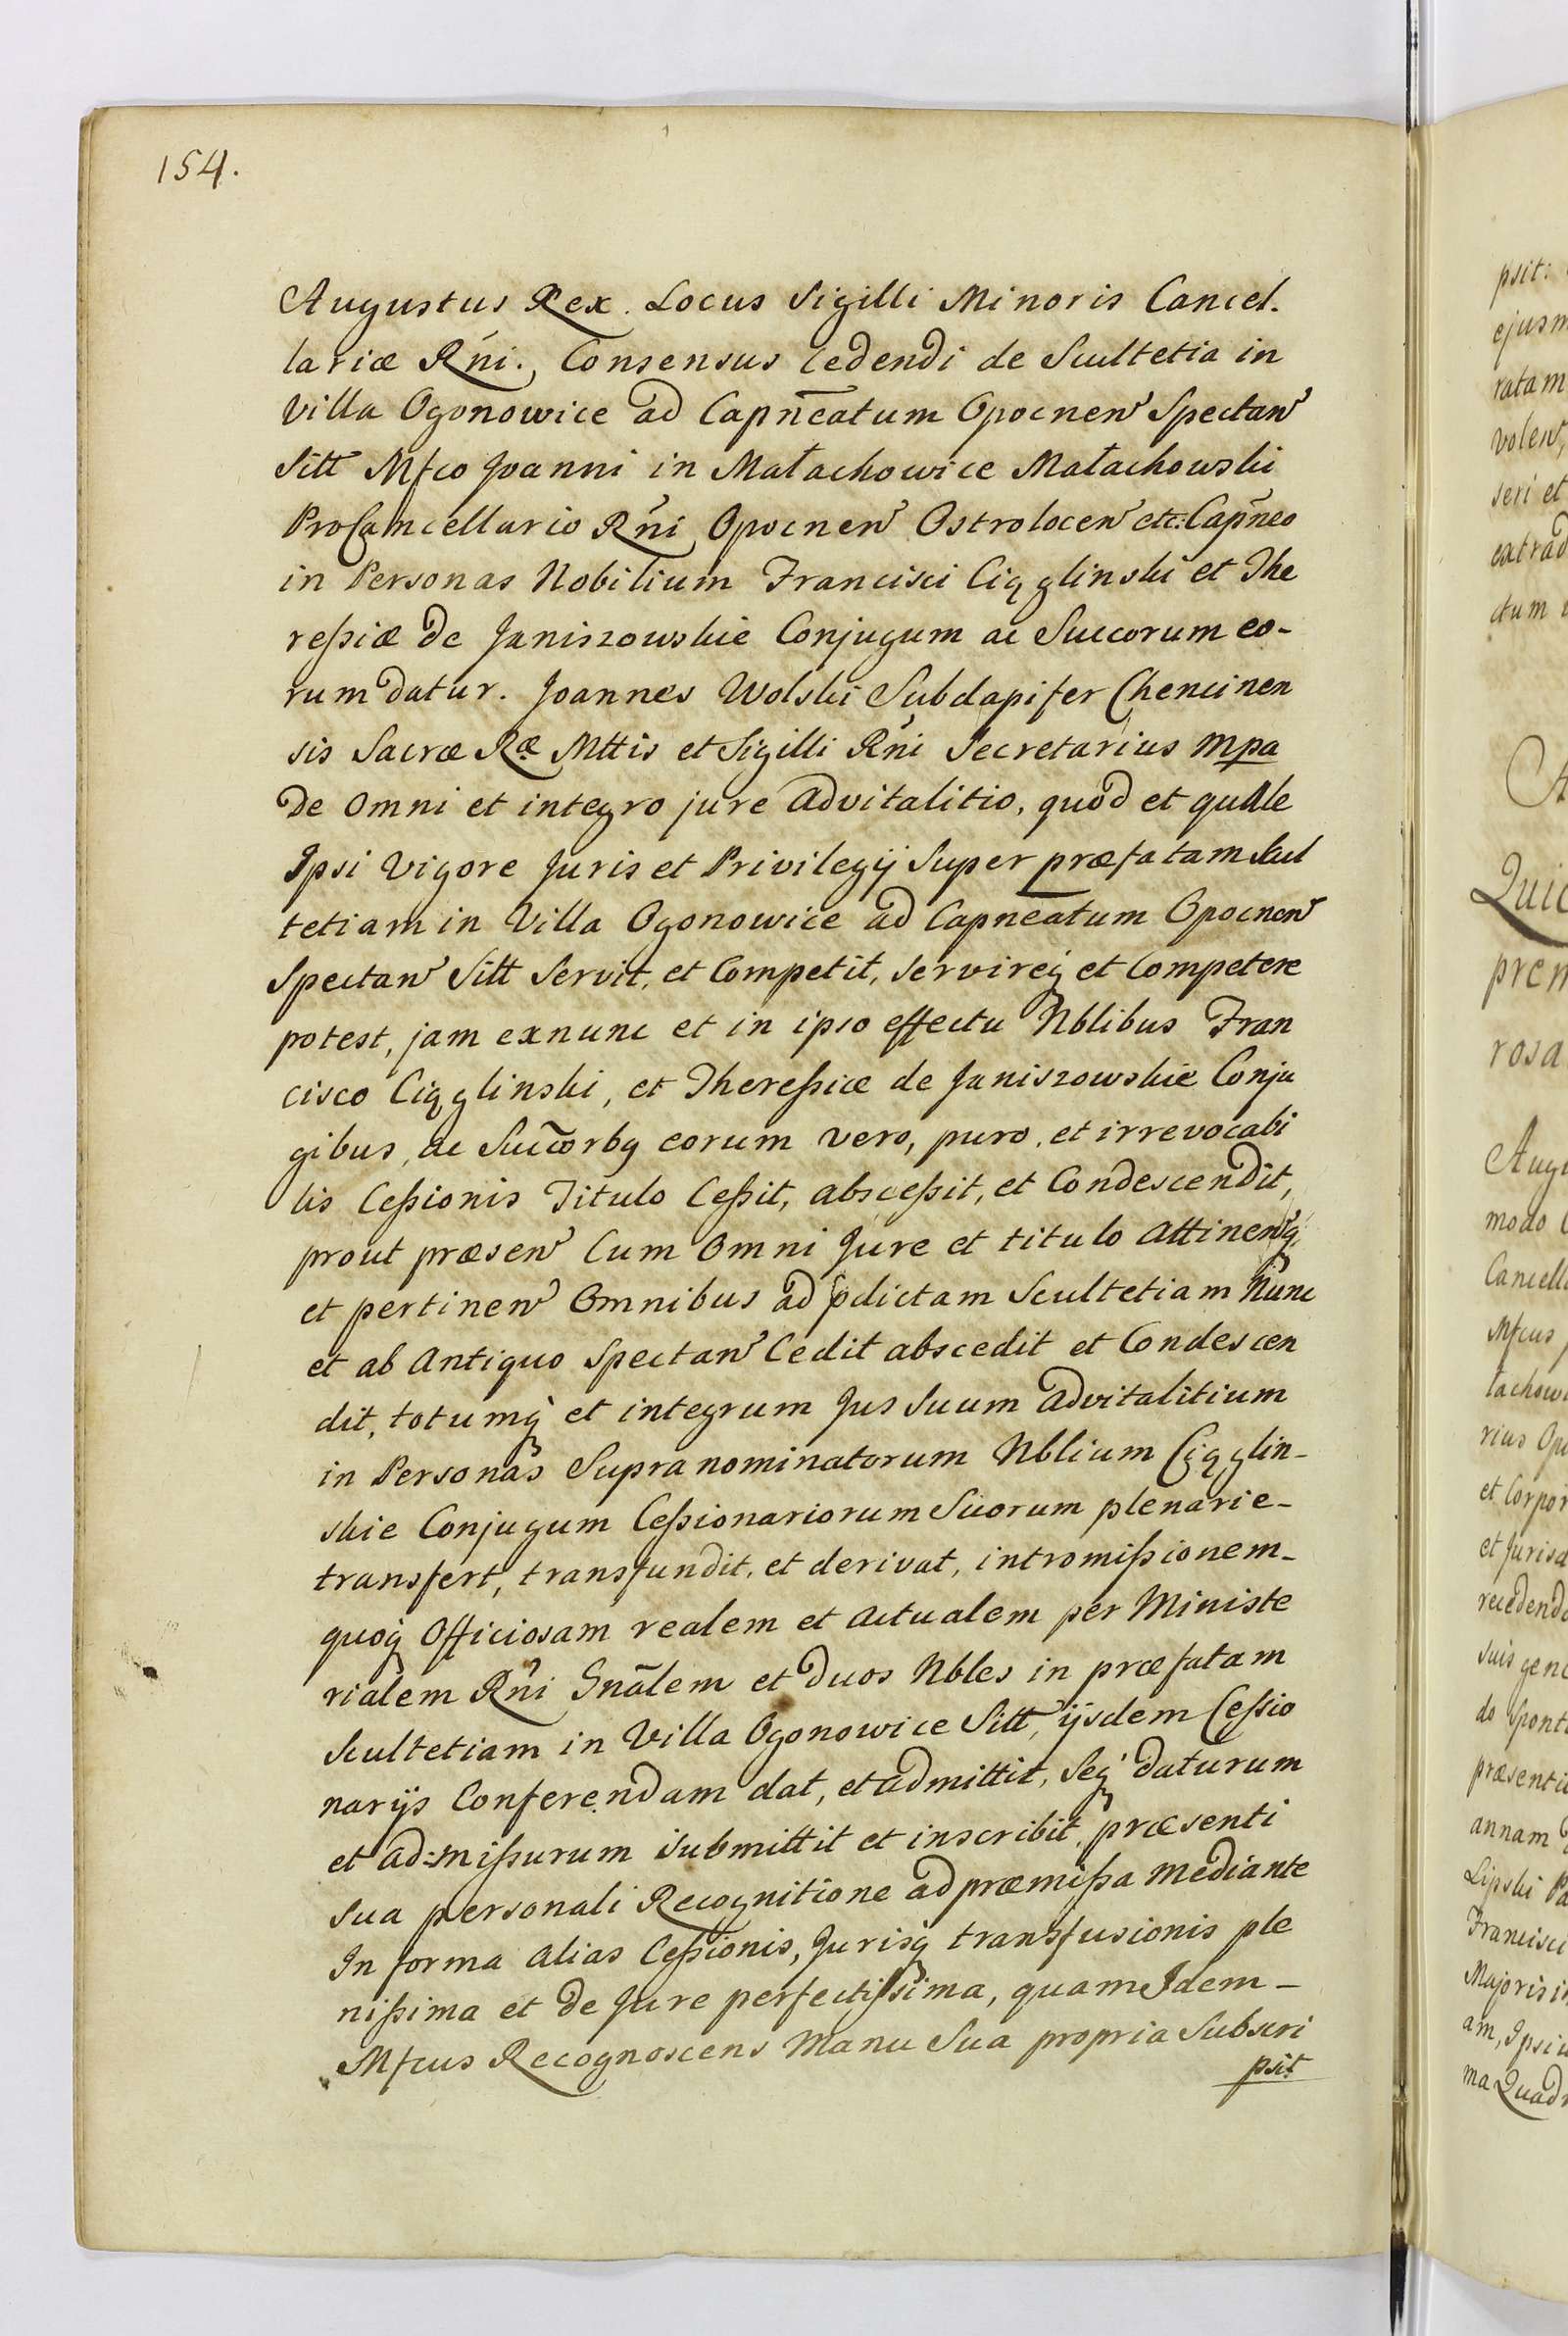 154.
Augustus Rex. Locus Sigilli Minoris Cancel.
lariæ Rńi. Consensus cedendi de Scultetia in
Villa Ogonowice ad Capn̄eatum Opocnen Spectan
Sitt Mfco Joanni in Małachowice Małachowski
ProCancellario Rńi Opocnen Ostrolocen etc: Capńeo
in Personas Nobilium Francisci Ciągliński et The
reßiæ de Janiszowskie Conjugum ac Succorum eo-
rum datur. Joannes Wolski Subdapifer Chencinen
sis Sacræ Ræ Mttis et Sigilli Rńi Secretarius mpa
De Omni et integro jure advitalitio, quod et quale
Ipsi Vigore Juris et Privilegij Super præfatam Scul
tetiam in Villa Ogonowice ad Capneatum Opocnen
Spectan Sitt Servit, et Competit, servireq́ et Competere
potest, jam exnunc et in ipso effectu Nblibus Fran
cisco Ciągliński, et Thereßiæ de Janiszowskie Conju
gibus, ac Succ̄orbq eorum vero, puro, et irrevocabi
lis Ceßionis Titulo Ceßit, absceßit, et Condescendit,
prout præsen Cum Omni Jure et titulo attinenq,
et pertinen Omnibus ad pdictam Scultetiam Nunc
et ab Antiquo Spectan Cedit abscedit et Condescen
dit, totumq́ et integrum Jus Suum advitalitium
in Personas Supranominatorum Nblium Ciąglin-
skie Conjugum Ceßionariorum Suorum plenarie-
transfert, transfundit, et derivat, intromißionem-
quoq́ Officiosam realem et actualem per Ministe
rialem Rńi Gnālem et duos Nbles in præfatam
Scultetiam in Villa Ogonowice Sitt, ijsdem Ceßio
narijs Conferendam dat, et admittit, Seq́ daturum
et ad:mißurum submittit et inscribit, præsenti
Sua personali Recognitione ad præmißa mediante
In forma alias Ceßionis, Jurisq́ transfusionis ple
nißima et de Jure perfectißima, quam Idem-
Mfcus Recognoscens Manu Sua propria Subscri
psit